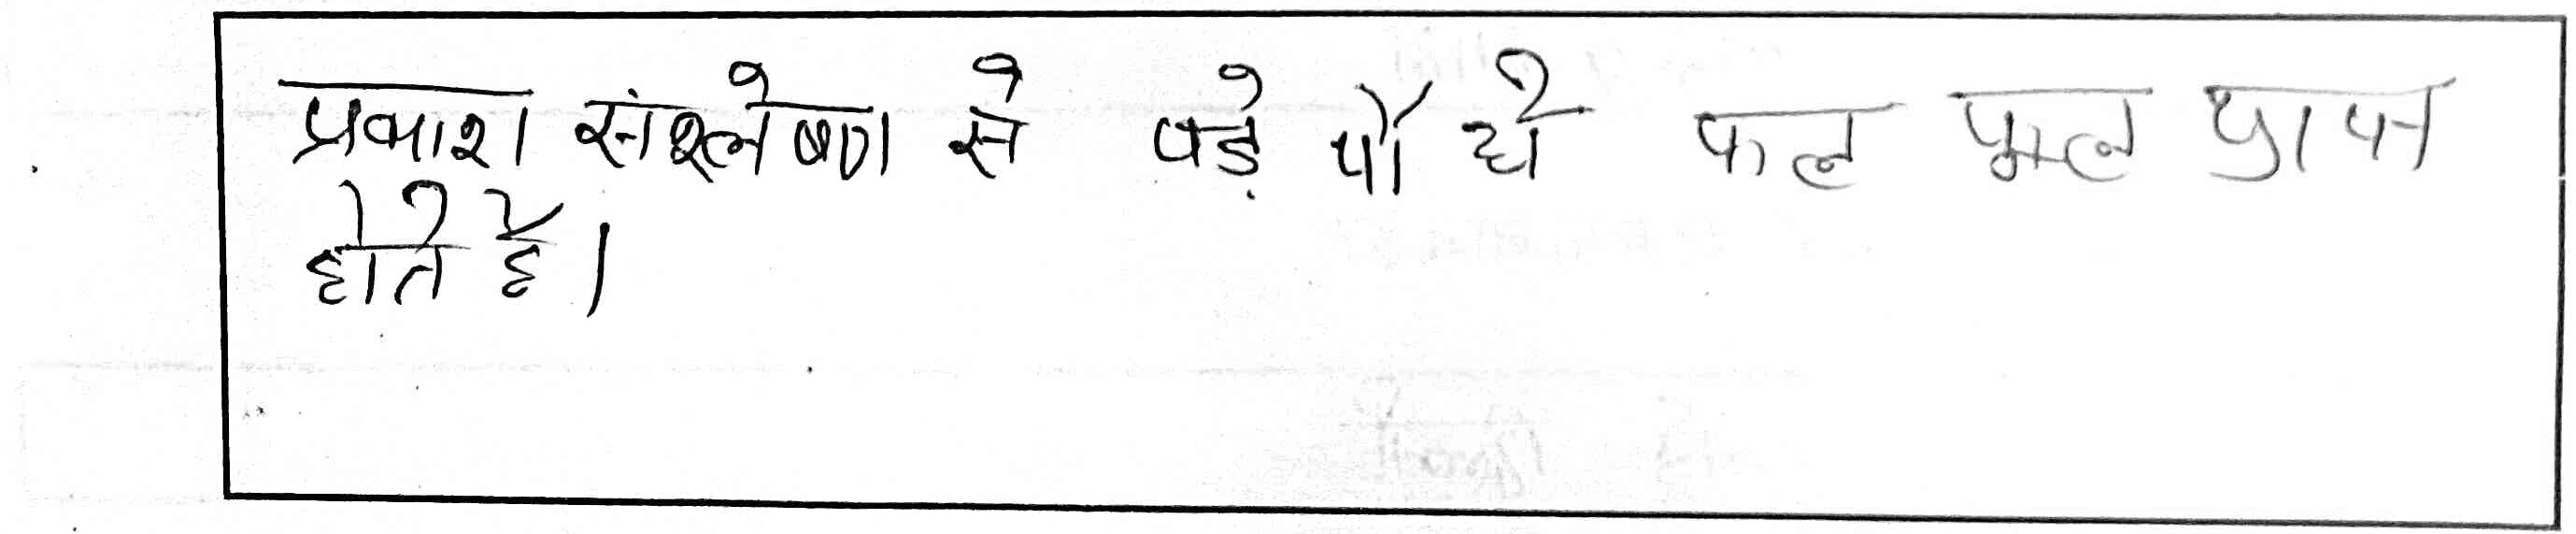 प्रकाश संश्लेषण से पड़े पौधे फल फूल प्राप्त
होते है।